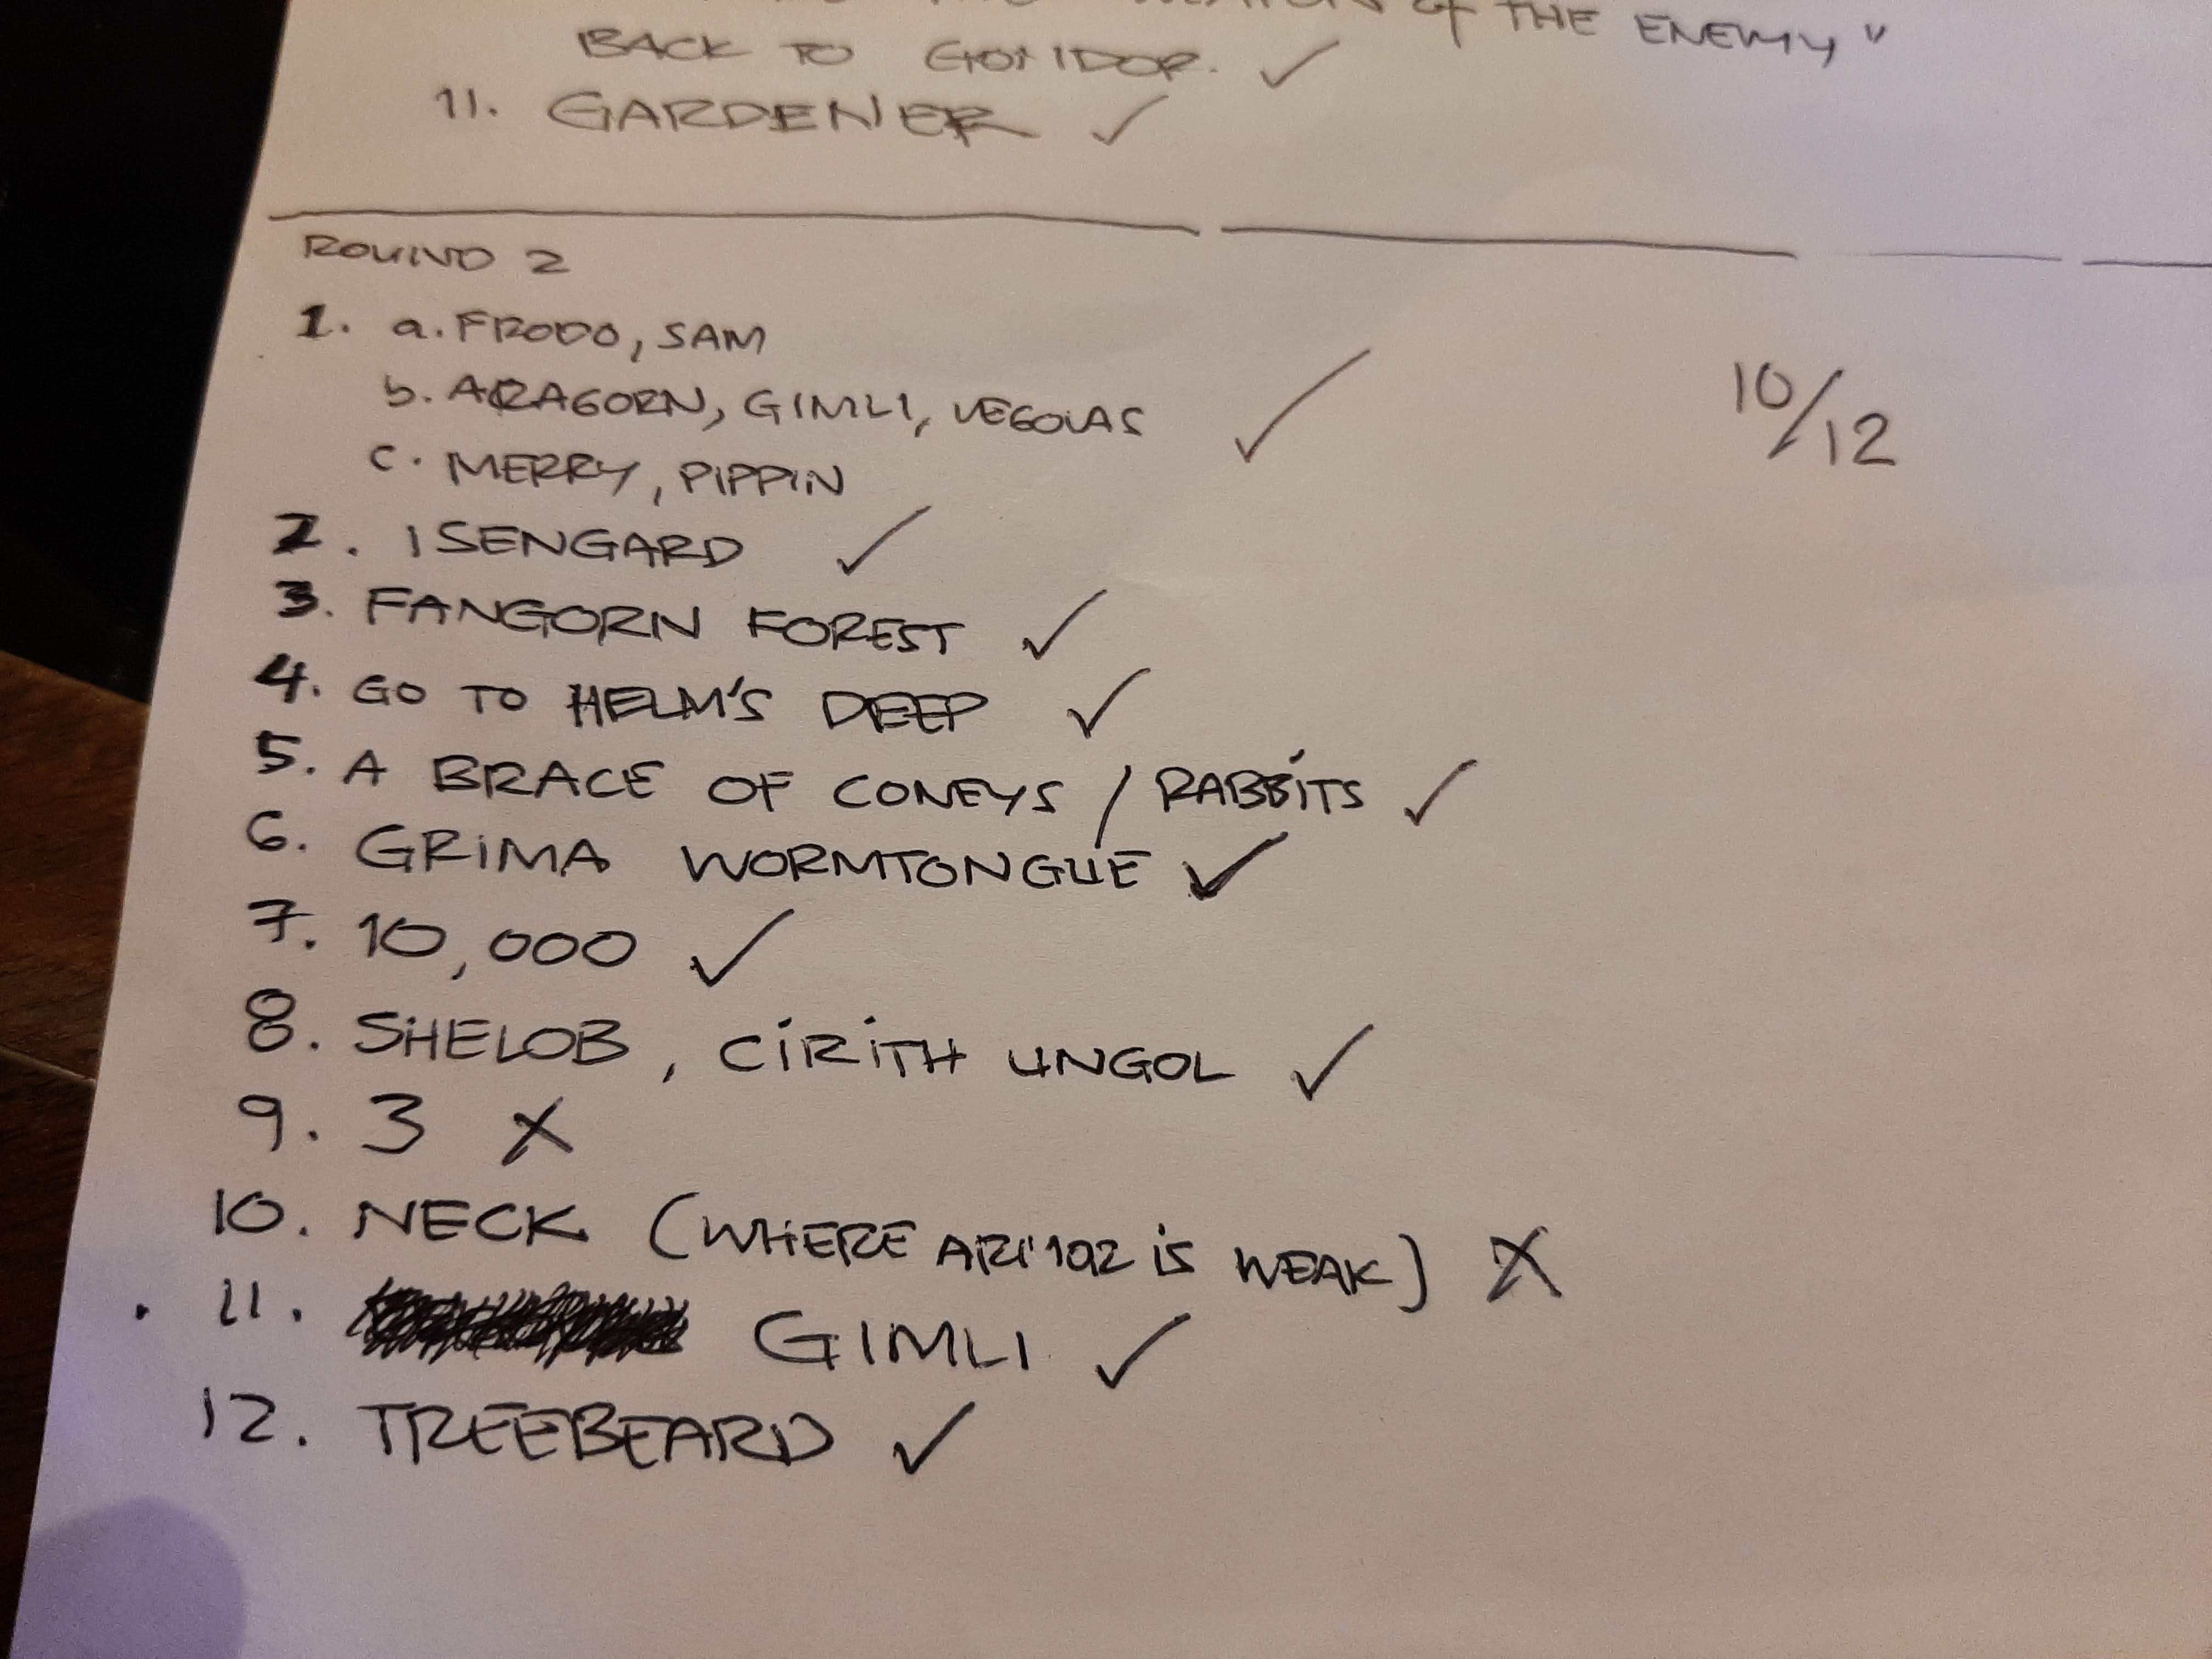 OF THE ENEMY"
BACK TO GONDOR. ✓
11. GARDENER ✓
ROUND 2
1. a. FRODO, SAM
b. ARAGORN, GIMLI, LEGOLAS ✓
10/12
c. MERRY, PIPPIN
2. ISENGARD ✓
3. FANGORN FOREST ✓
4. GO TO HELM'S DEEP ✓
5. A BRACE OF CONEYS / RABBITS ✓
6. GRIMA WORMTONGUE ✓
7. 10,000 ✓
8. SHELOB, CIRITH UNGOL ✓
9. 3 X
10. NECK (WHERE IS WEAK) X
11. GIMLI ✓
12. TREEBEARD ✓